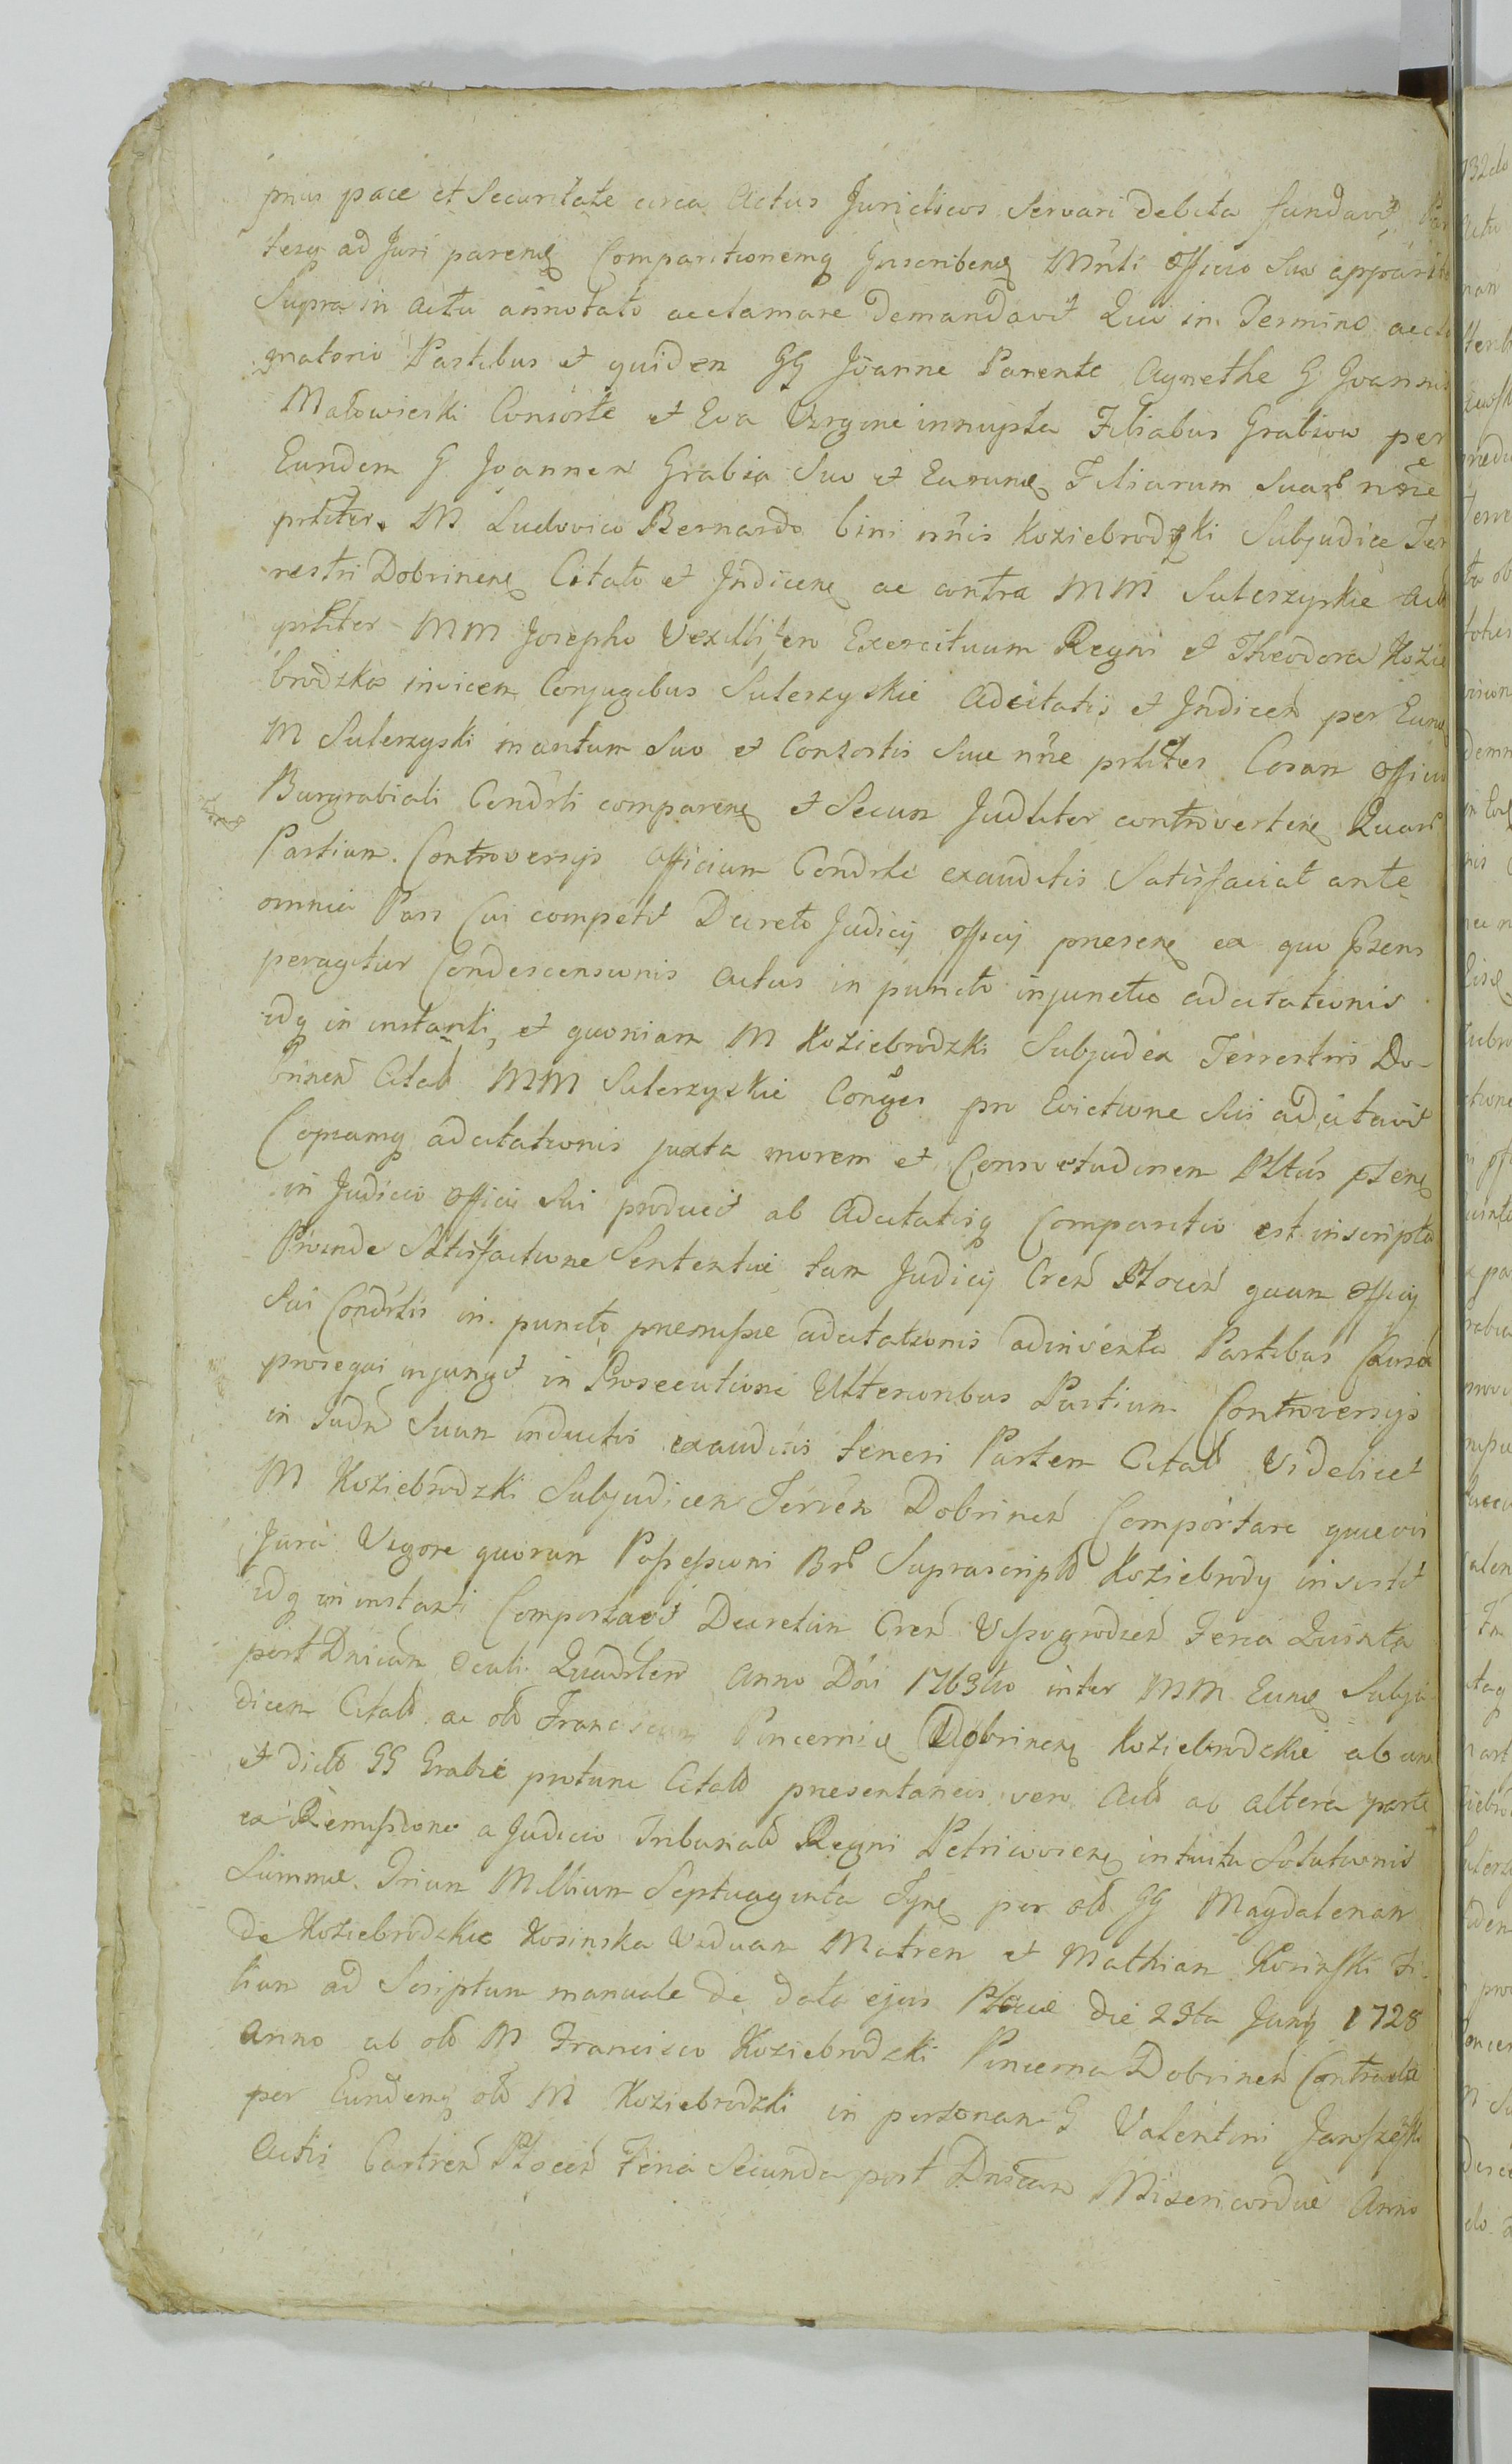 prius pace et Securitate circa Actus Juridicos Servari debita fundavit, Par
tesq ad Juri parenđ Comparitionemq Inscribenđ Mnti Officio Suo apparito
Supra in actu annotato acclamare demandavit Quo in Termino accla
matorio Partibus et quidem GG Joanne Parente Agnethe G Joannis
Małowieski Consorte et Eva Virgine innupta Filiabus Grabiow per
Eundem G Joannem Grabia Suo et Earunđ Filiarum Suarᵇ nōīe
prlter. M Ludovico Bernardo bini nn̄is Koziebrodzki Subjudice Ter
restri Dobrinenđ Citato et Indicenđ ac contra MM Suterzyskie Act
prlter MM Josepho Vexillifero Exercituum Regni et Theodora Kozie
brodzkos invicem Conjugibus Suterzyskie Adcitatis et Indiceñ per Eunđ
M Suterzyski in antum Suo et Consortis Sue nn̄e prlter Coram Officio
Burgrabiali Condrli comparenđ et Secum Judlter controvertenđ Quarᵇ
Partium Controversys Officium Condrle exauditis Satisfaciat ante
omnia Pars Cui competit Decreto Judicij Officij presenđ ex quo Pzens
peragitur Condescensionis actus in puncto injuncto adcitationis
idq in instanti, et quoniam M Koziebrodzki Subjudex Terrestris Do-
brineñ Citatᵇ MM Suterzyskie Conges pro Evictione Sui adcitavit
Copiamq adcitationis juxta morem et Consvetudinem Pltus ptenđ
in Judicio Officii Sui producit ab Adcitatisq Comparitio est inscripta
Proinde Satisfactione Sententie tam Judicij Creñ Ploceñ quam Officij
Sui Condrlis in puncto premisse adcitationis adinventa Partibus Causa
prosequi injungit in Prosecutione Ulterioribus Partium Controversys
in Judñ Suum inductis exauditis teneri Partem Citatᵇ Videlicet
M Koziebrodzki Subjudicem Terreñ Dobrineñ Comportare quaevis
Jura Vigore quorum Possessioni Brᵇ Suprascriptᵇ Koziebrody insistit
idq in instanti Comportavit Decretum Creñ Wyszogrodieñ Feria Quinta
post Dnicam Oculi Quadrleñ Anno Dni 1763tio inter MM Eunđ Subju
dicem Citatᵇ ac olᵇ Franciscum Pincernie Dobrinenđ Koziebrodzkie ab una
et dictᵇ GG Grabie protunc Citatᵇ presentaneis vero Actᵇ ab altera parte
ex Remissione a Judicio Tribunalᵇ Regni Petricovienđ intuitu Solutionis
Summe Trium Millium Septuaginta Tynđ per olᵇ GG Magdalenam
de Koziebrodzkie Kosinska Viduam Matrem et Mathiam Kosinski Fi-
lium ad Scriptum manuale de data ejus Ploce die 23tia Junij 1728
Anno ab olᵇ M Francisco Koziebrodzki Pincerna Dobrineñ Contracta
per Eundemq olᵇ M Koziebrodzki in personam G Valentini
Actis Castreñ Ploceñ Feria Secunda post Dnicam Misericordie Anno